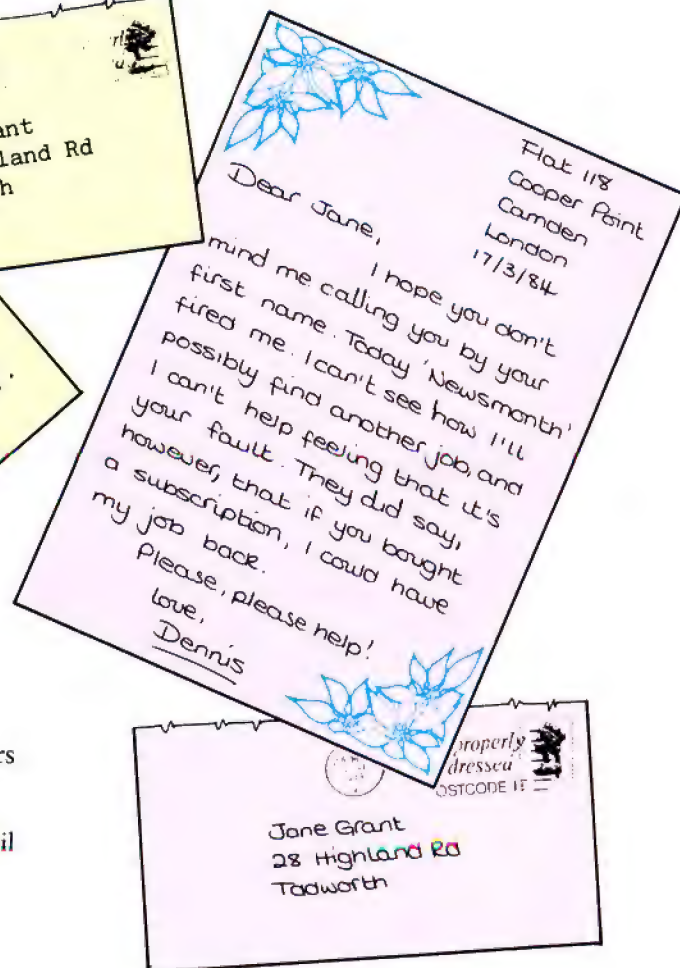 ant
land Rd
h
Flat 118
Cooper Point
Camden
London
17/3/84
Dear Jane,
I hope you don't
mind me calling you by your
first name. Today 'Newsmonth'
fired me. I can't see how I'll
possibly find another job, and
I can't help feeling that it's
your fault. They did say,
however, that if you bought
a subscription, I could have
my job back.
Please, please help!
Love,
Dennis
properly
dressed
OSTCODE IT
Jane Grant
28 Highland Rd
Tadworth
rs
il